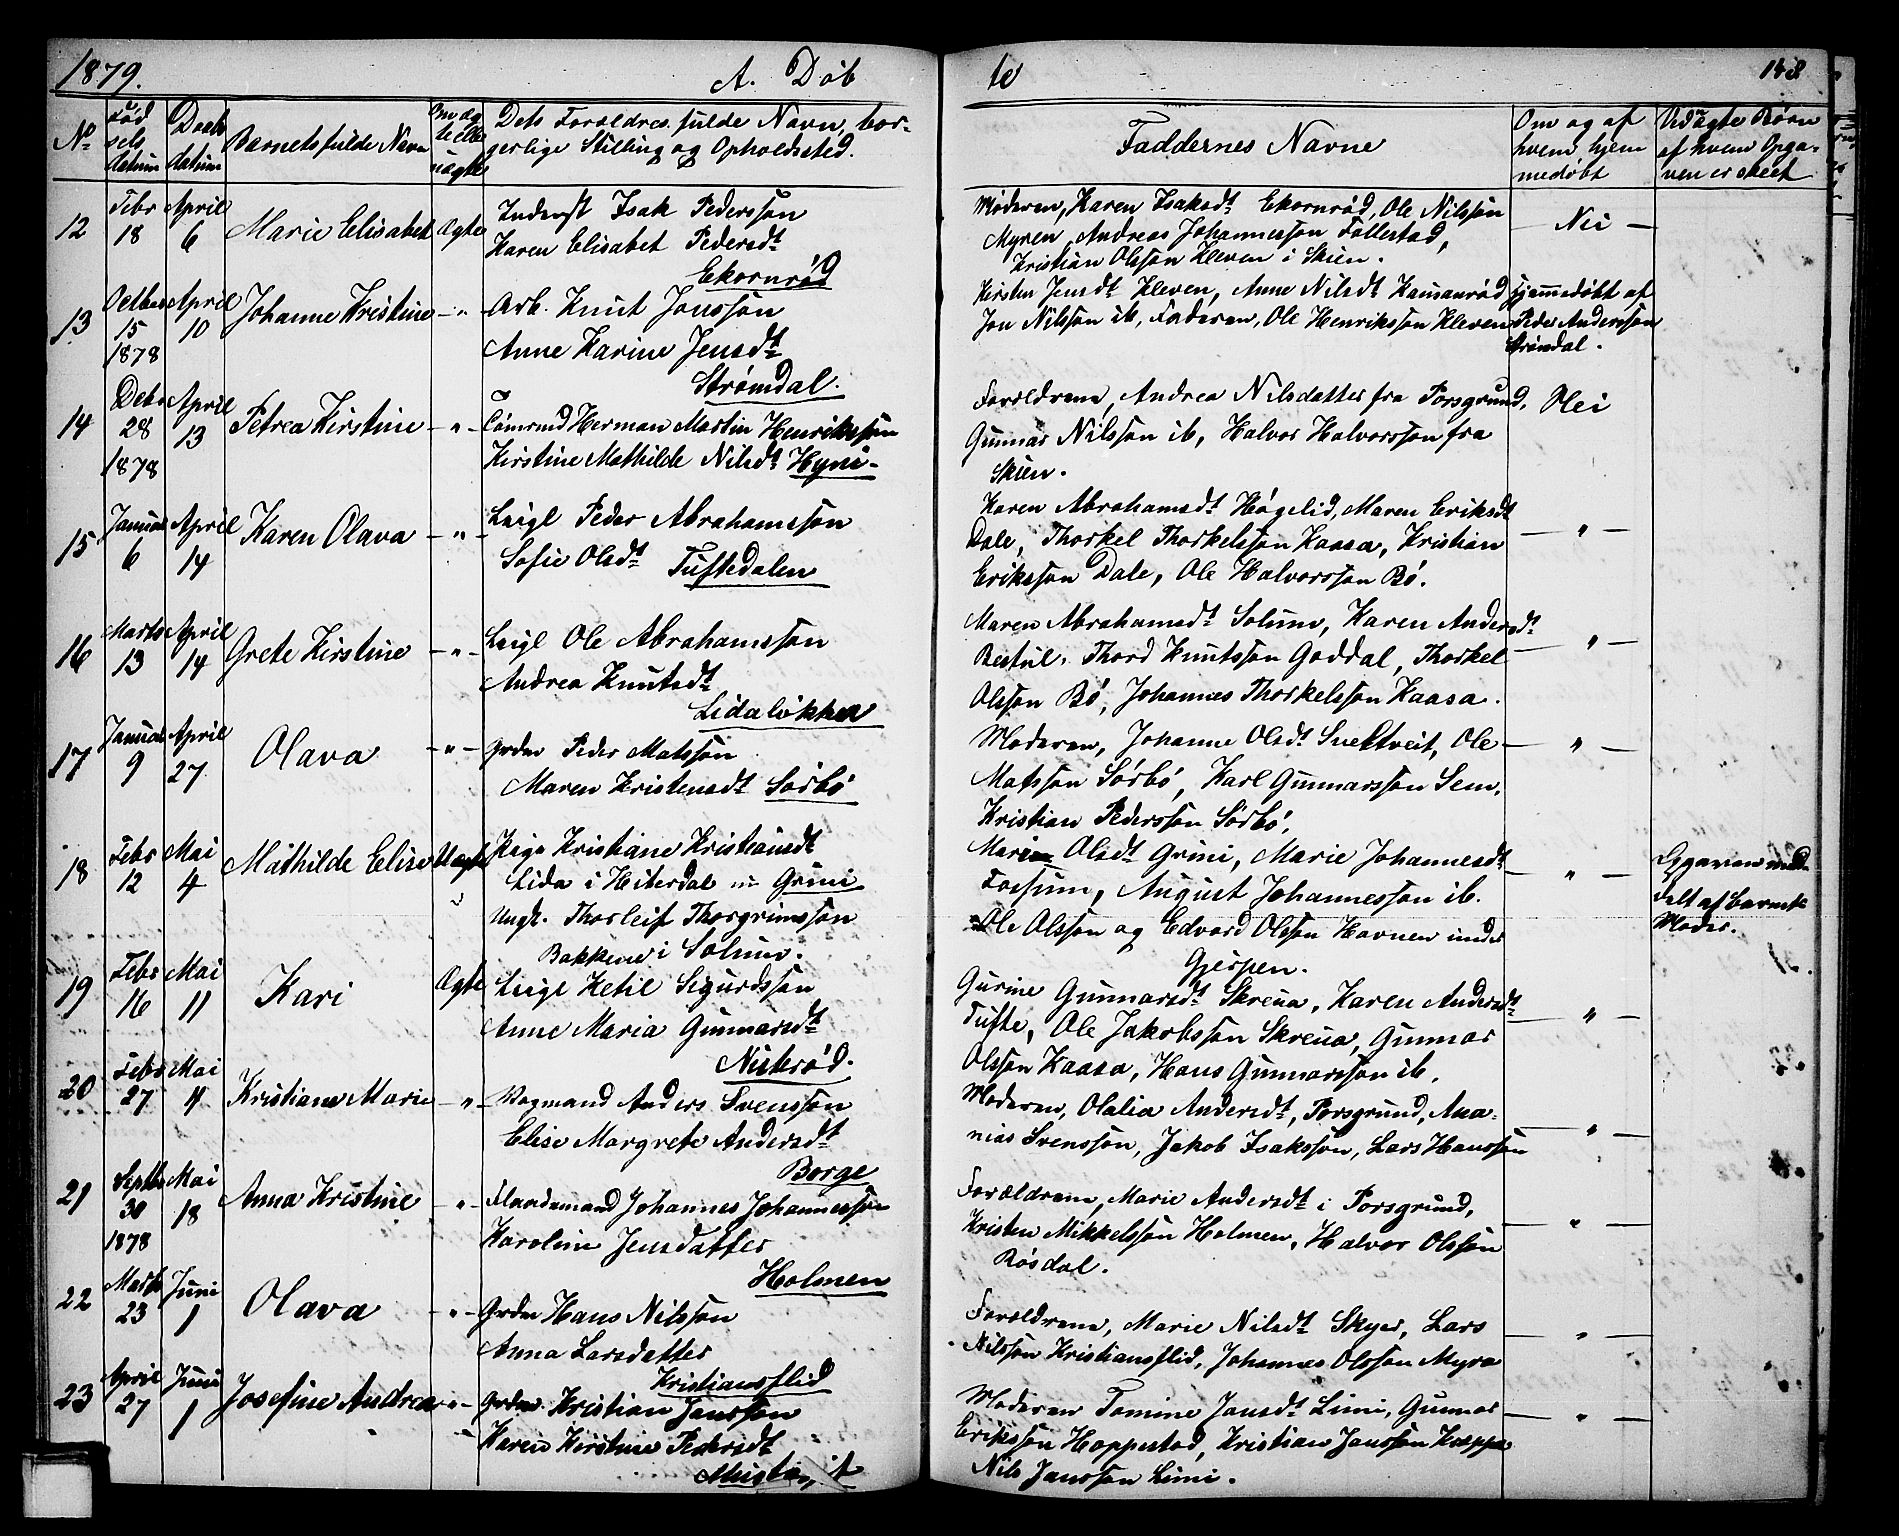 1879. A. Døbte 148
No
Fødselsdatum
Daabsdatum
Barnets fulde Navn
Om ægte eller uægte
Dets Forældres fulde Navn, borgerlige Stilling og Opholdssted.
Faddernes Navne
Om og af hvem hjemmedøbt
Uægte Børn af hvem Opgaven er skeet
12 Febr 18 April 6 Marie Elisabet Ægte
Inderst Isak Pederssøn
Karen Elisabet Pedersdt
Ekornrød
Moderen, Karen Isaksdt Ekornrød, Ole Nilssøn
Myren, Andreas Johannessøn Follestad,
Kristian Olssøn Kleven i Skien.
— Nei —
13 Octbr 15 1878 April 10 Johanne Kristine — " —
Arb. Knut Jonssøn
Anne Karine Jensdt
Strømdal.
Kirsten Jensdt Kleven, Anne Nilsdt
Jon Nilssøn ib, Faderen, Ole Henrikssøn Kleven
Hjemmedøbt af
Peder Anderssøn
Strømdal.
14 Debr 28 1878 April 13 Petrea Kirstine — " —
Tømrmd Herman Martin Henrikssøn
Kirstine Mathilde Nilsdt Hyni.
Forældrene, Andrea Nilsdatter fra Porsgrund,
Gunnar Nilssøn ib, Halvor Halvorssøn fra
Skien.
Nei
15 Januar 6 April 14 Karen Olava — " —
Leigl Peder Abrahamssøn
Sofie Olsdt Tuftedalen
Karen Abrahamsdt Høgelid, Maren Eriksdt
Dale, Thorkel Thorkelssøn Kaasa, Kristian
Erikssøn Dale, Ole Halvorssøn Bø.
— " —
16 Marts 13 April 14 Grete Kirstine — " —
Leigl Ole Abrahamssøn
Andrea Knutsdt
Lidaløkka
Maren Abrahamsdt Solum, Karen Andersdt
Bestul, Thord Knutssøn Goddal, Thorkel
Olssøn Bø, Johannes Thorkelssøn Kaasa.
— " —
17 Januar 9 April 27 Olava — " —
Grdmr Peder Matssøn
Maren Kristensdt Sørbø
Moderen, Johanne Olsdt Sneltveit, Ole
Matssøn Sørbø, Karl Gunnarssøn Sem,
Kristian Pederssøn Sørbø.
— " —
18 Febr 12 Mai 4 Mathilde Elise Uægte
Pige Kristiane Kristiansdt
Lida i Hiterdal nu Grini
Ungk. Thorleif Thorgrimssøn
Bakkene i Solum.
Maren Olsdt Grini, Marie Johannesdt
Fossum, August Johannessøn ib.
Ole Olssøn og Edvard Olssøn Havnen under
Gjerpen.
— " —
Opgaven meddelt af Barnets
Moder.
19 Febr 16 Mai 11 Kari Ægte
Leigl Ketil Sigurdssøn
Anne Maria Gunnarsdt
Nisterød.
Gurine Gunnarsdt Skreua, Karen Andersdt
Tufte, Ole Jakobssøn Skreua, Gunnar
Olssøn Kaasa, Hans Gunnarssøn ib.
— " —
20 Febr 27 Mai 11 Kristiane Marie — " —
Vogmand Anders Svenssøn
Elise Margrete Andersdt
Borge
Moderen, Olalia Andersdt, Porsgrund, Ananias Svenssøn, Jakob Isakssøn, Lars Hanssøn
— " —
21 Septbr 30 1878 Mai 18 Anna Kristine — " —
Johannes Johannessøn
Karoline Jensdatter
Holmen
Forældrene, Marie Andersdt i Porsgrund,
Kristen Mikkelssøn Holmen, Halvor Olssøn
Røsdal.
— " —
22 Marts 23 Juni 1 Olava — " —
Grdmr Hans Nilssøn
Anna Larsdatter
Kristianslid
Forældrene, Marie Nilsdt Skyer, Lars
Nilssøn Kristianslid, Johannes Olssøn Myra
— " —
23 April 27 Juni 1 Josefine Andrea — " —
Grdmr Kristian Janssøn
Karen Kirstine Pedersdt
Moderen Tomine Jansdt Limi, Gunnar
Erikssøn Hoppestad, Kristian Janssøn
Nils Janssøn Limi.
— " —